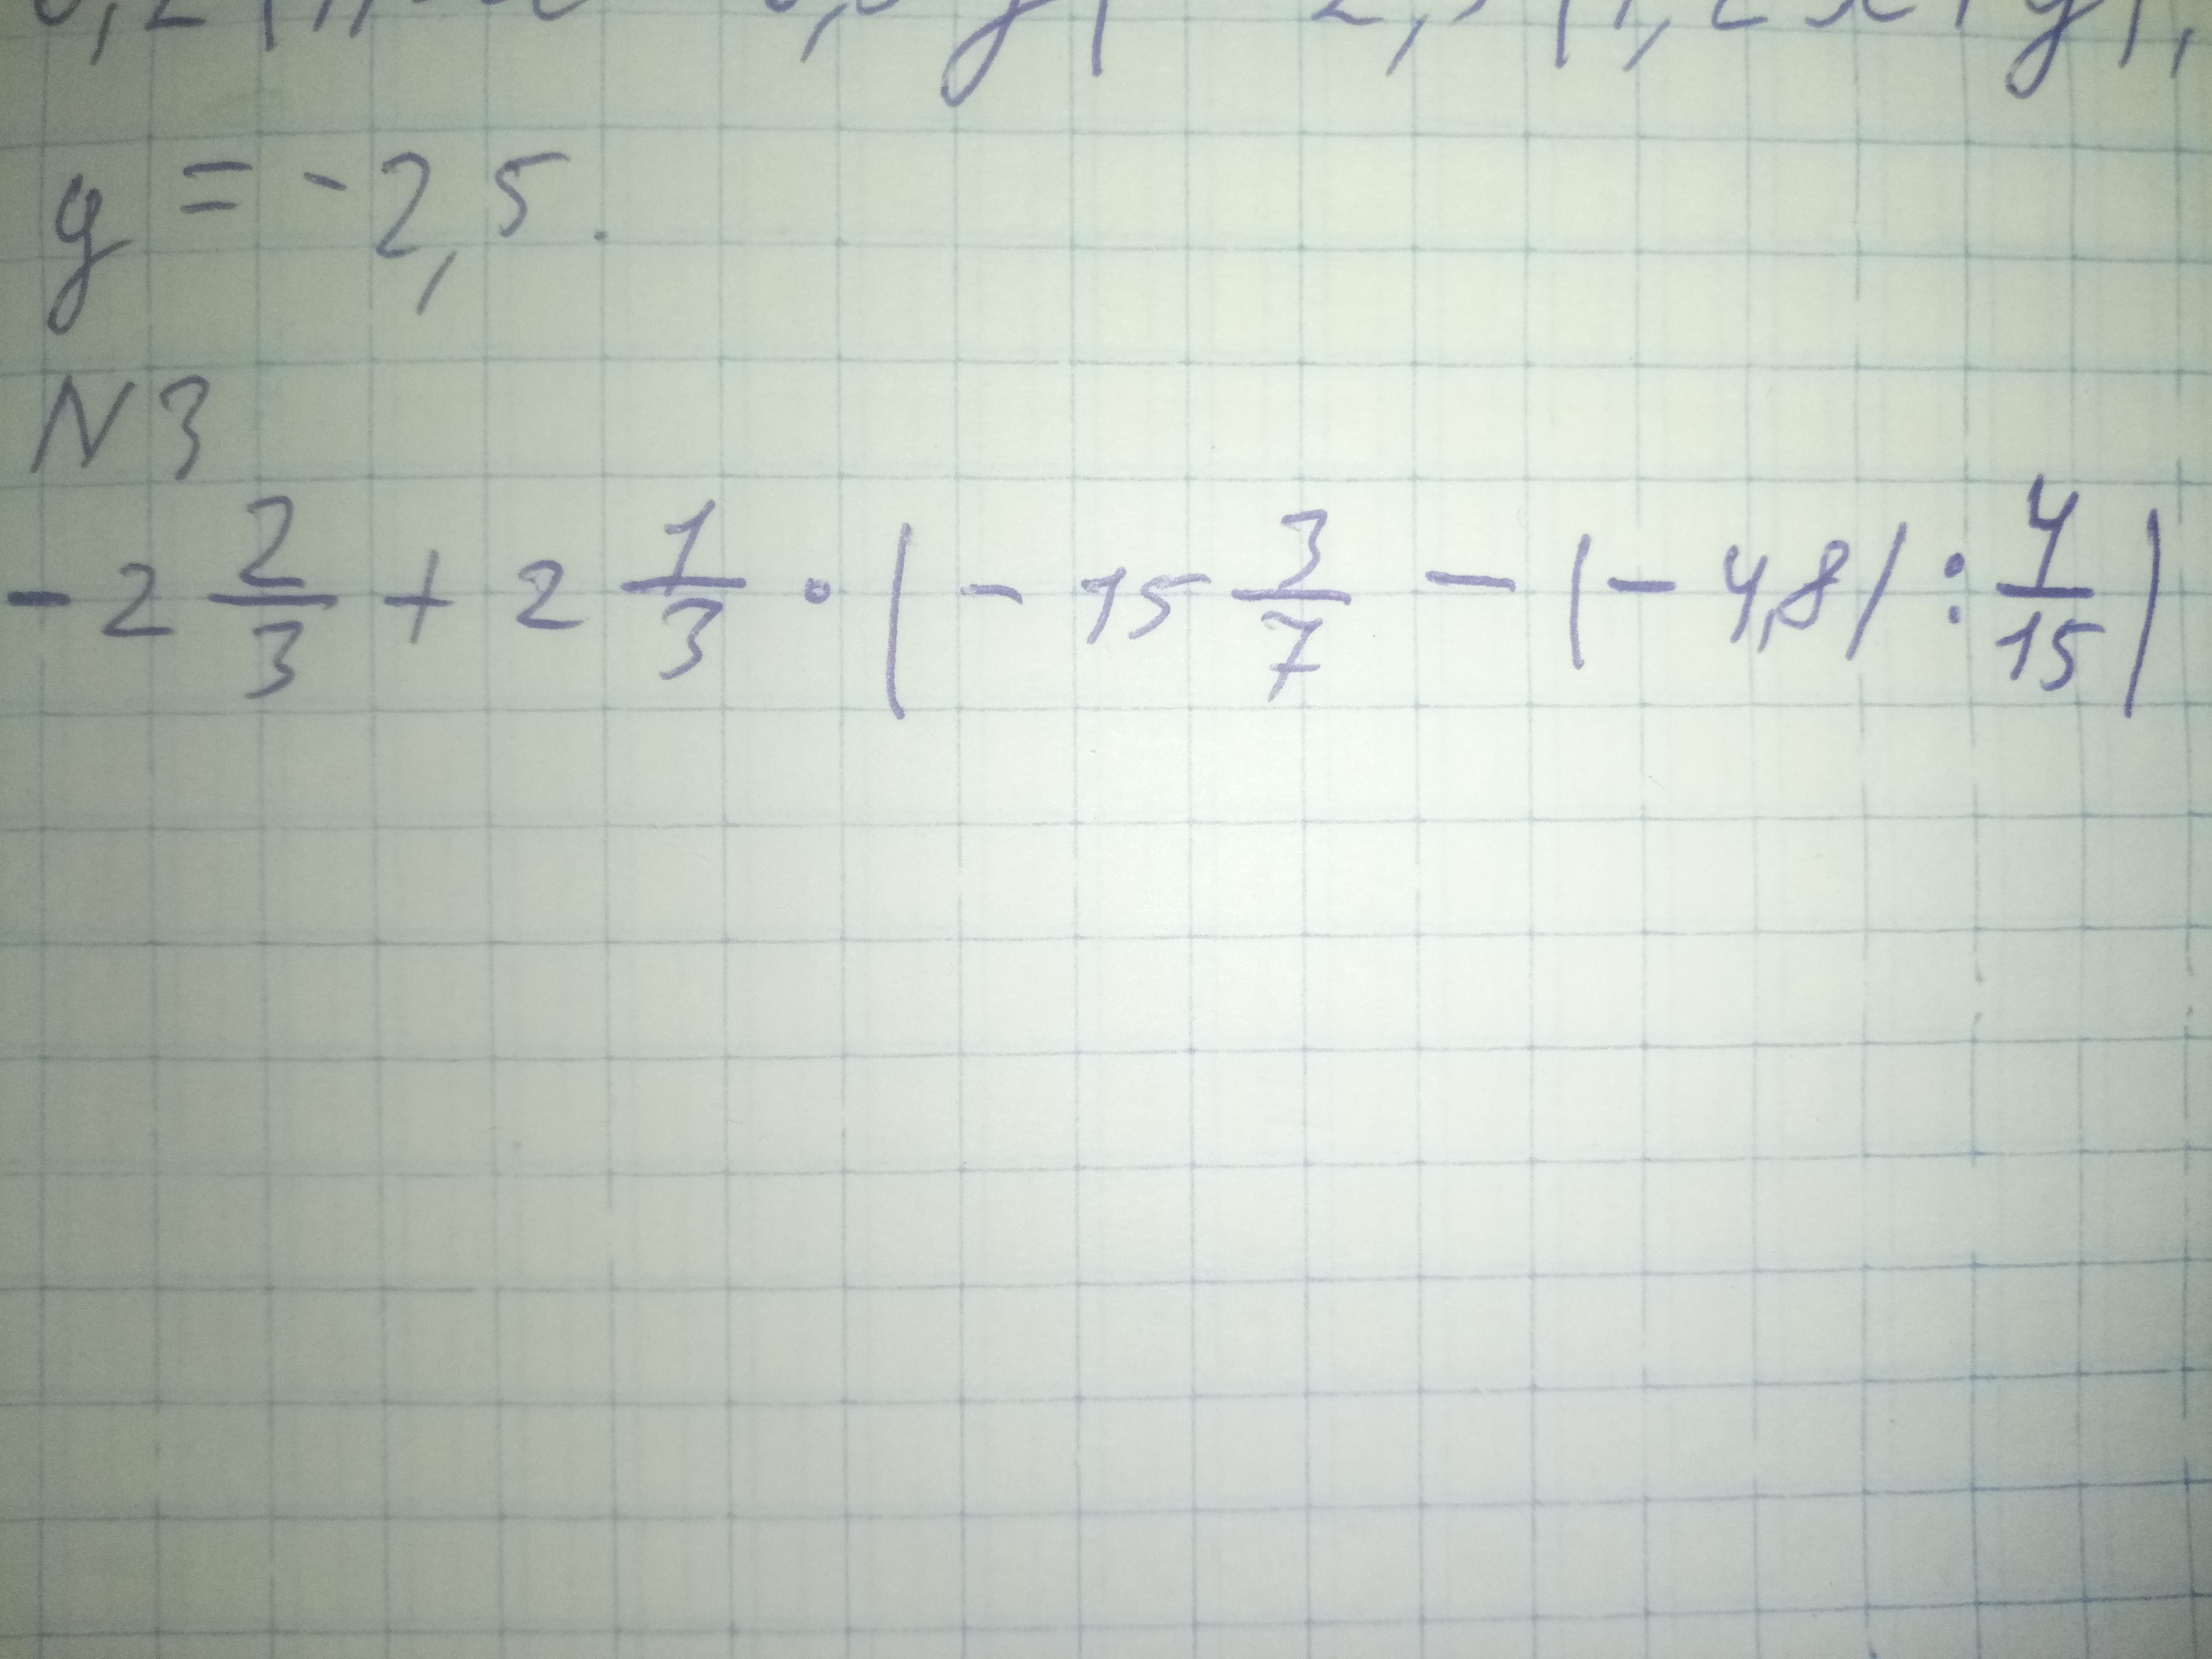 y = -2,5.
N3
-2 2/3 + 2 1/3 · (-15 3/7 - (-4,8) : 4/15)